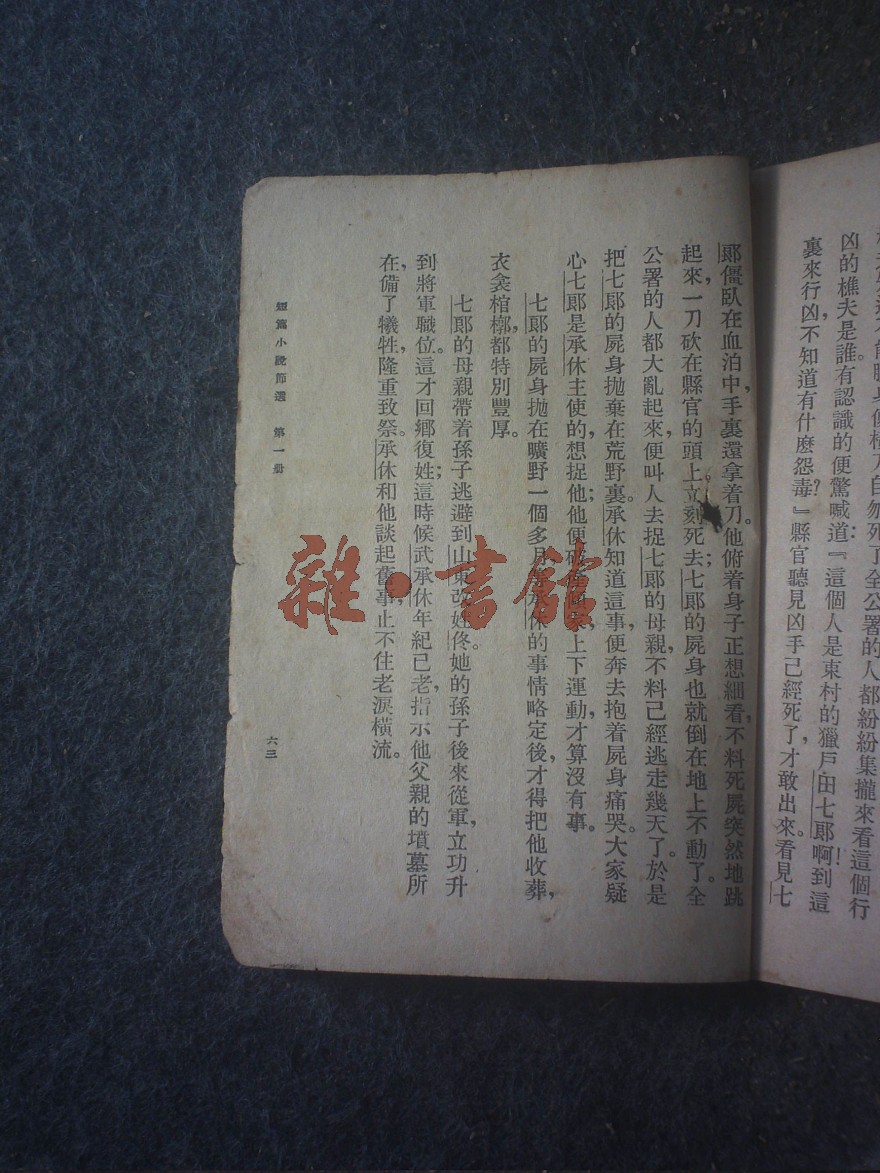 自刎死了全公署的人都紛紛集攏來看這個行
凶的樵夫是誰有認識的便驚喊道：『這個人是東村的獵戶田七郎啊！到這
裏來行凶，不知道有什麼怨毒？』縣官聽見凶手已經死了，才敢出來。看見七
郎僵臥在血泊中，手裏還拿着刀。他俯着身子正想細看，不料死屍突然地跳
起來，一刀砍在縣官的頭上，立刻死去；七郎的屍身也就倒在地上不動了。全
公署的人都大亂起來，便叫人去捉七郎的母親，不料已經逃走幾天了。於是
把七郎的屍身拋棄在荒野裏。承休知道這事，便奔去抱着屍身痛哭。大家疑
心七郎是承休主使的，想捉他；他便破產傾家，上下運動，才算沒有事。
七郎的屍身拋在曠野一個多月，承休的事情略定後，才得把他收葬，
衣衾棺槨，都特別豐厚。
七郎的母親帶着孫子逃避到山東，改姓佟。她的孫子後來從軍，立功升
到將軍職位。這才回鄉復姓；這時候武承休年紀已老，指示他父親的墳墓所
在，備了犧牲，隆重致祭。承休和他談起舊事，止不住老淚橫流。
短篇小說節選 第一册
六三
雜·書館